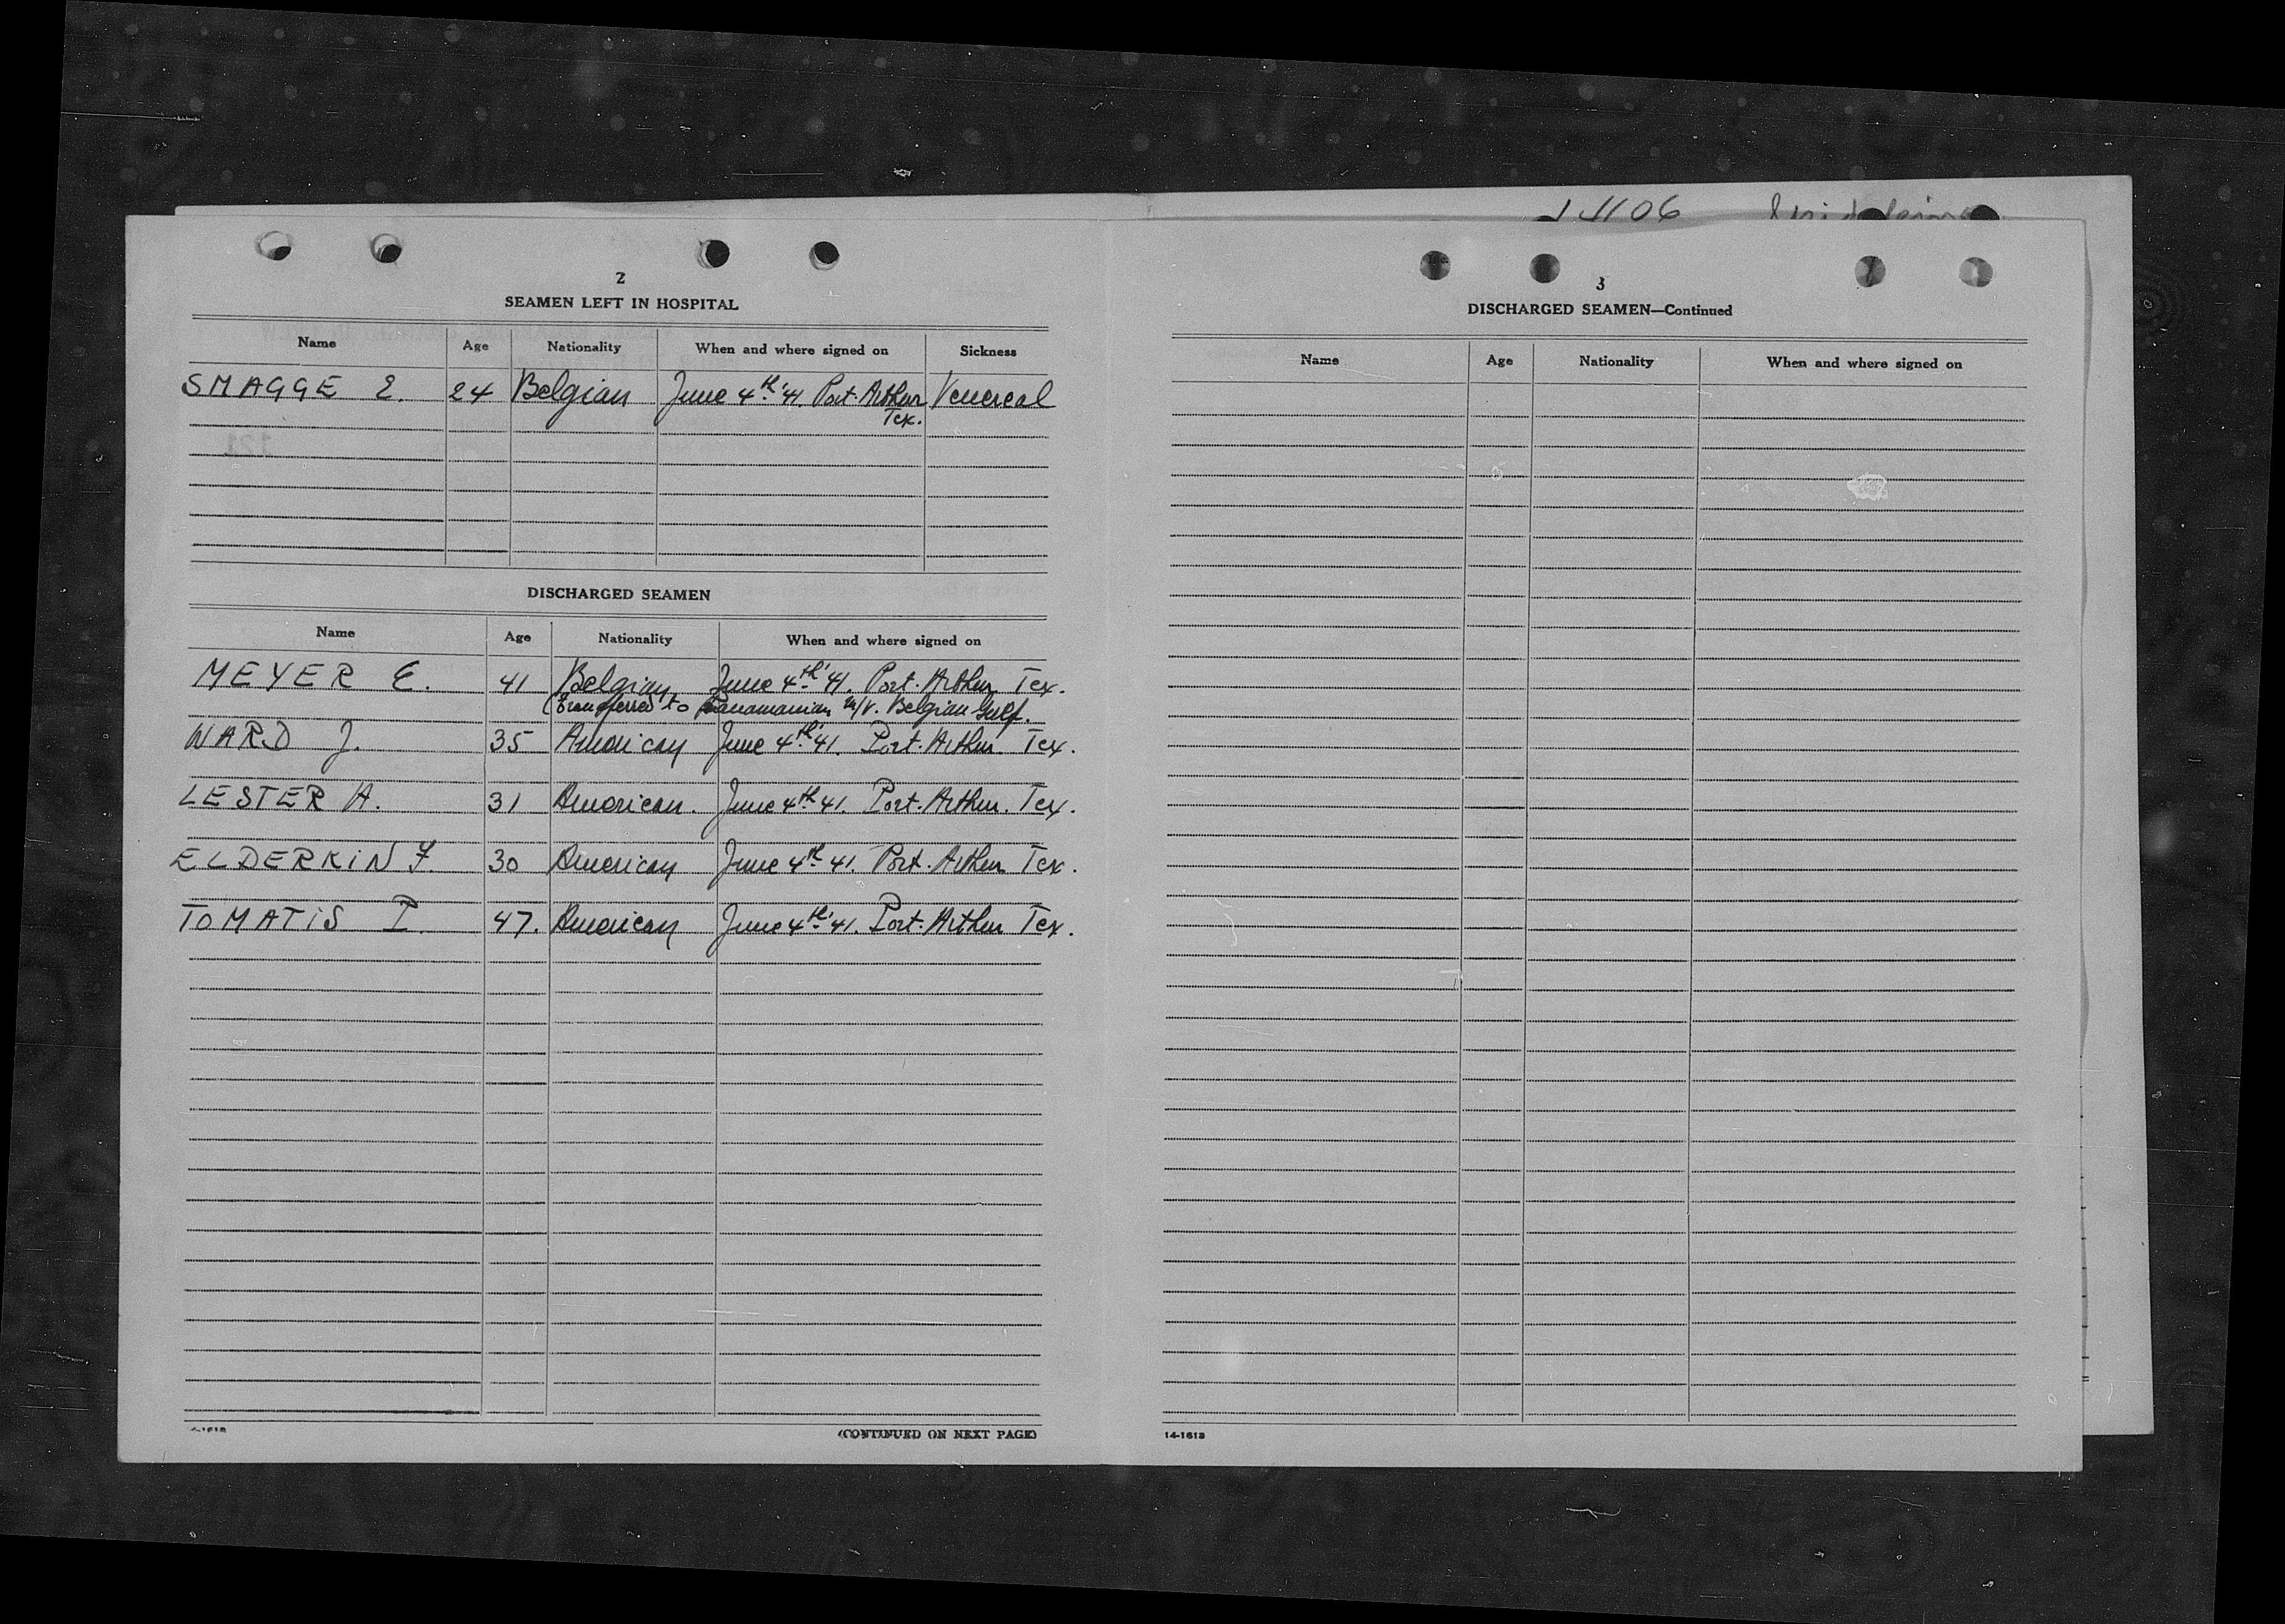 2
SEAMEN LEFT IN HOSPITAL
Name Age Nationality When and where signed on Sickness
SMAGGE E. 24 Belgian June 4th '41. Port-Arthur Tex. Venereal
DISCHARGED SEAMEN
Name Age Nationality When and where signed on
MEYER E. 41 Belgian June 4th '41. Port-Arthur Tex.
(Transferred to Panamanian M/V. Belgian Gulf.
WARD J. 35 American June 4th '41. Port-Arthur. Tex.
LESTER A. 31 American. June 4th 41. Port-Arthur. Tex.
ELDERKIN F. 30 American June 4th 41. Port-Arthur Tex.
TOMATIS P. 47. American June 4th '41. Port-Arthur Tex.
(CONTINUED ON NEXT PAGE)
3
DISCHARGED SEAMEN—Continued
Name Age Nationality When and where signed on
14-1613